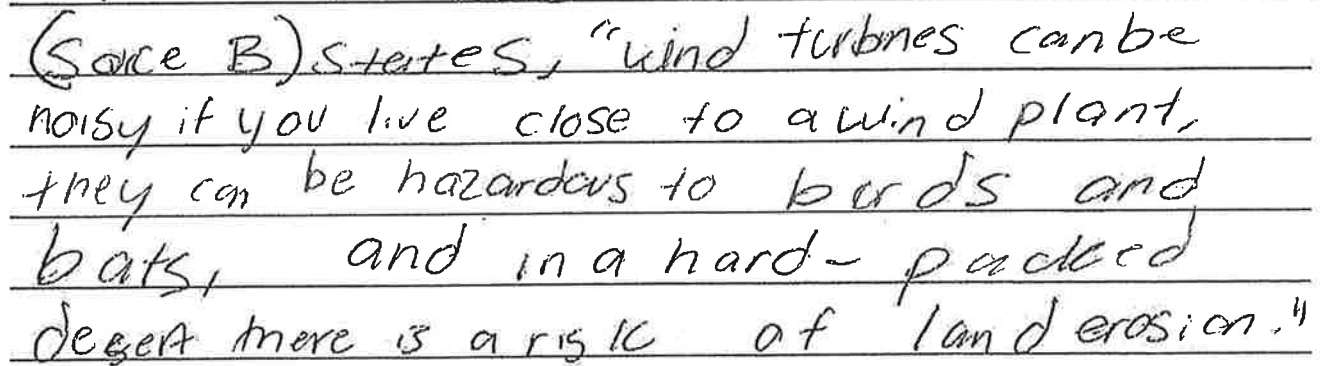 (Sorce B) States, "wind turbnes can be
noisy if you live close to a wind plant,
they can be hazardous to birds and
bats, and in a hard-packed
desert there is a risk of land erosion."